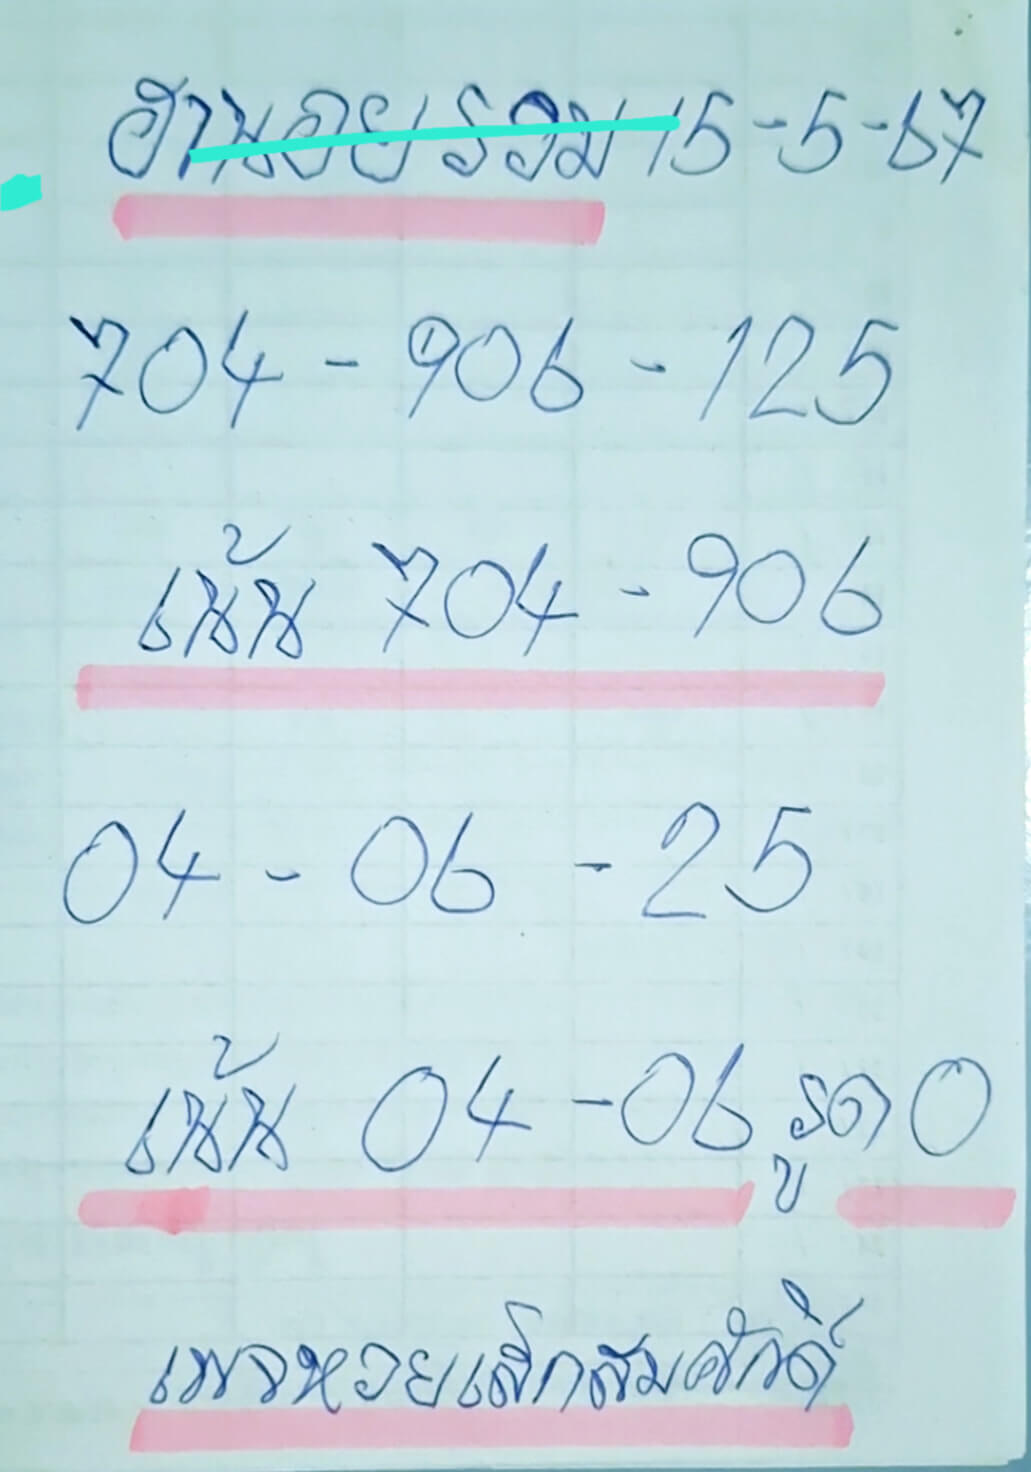 ฮานอย รวม 15-5-67
704 - 906 - 125
เน้น 704 - 906
04 - 06 - 25
เน้น 04 - 06 รูด 0
เพจหวยเสกสมศักดิ์